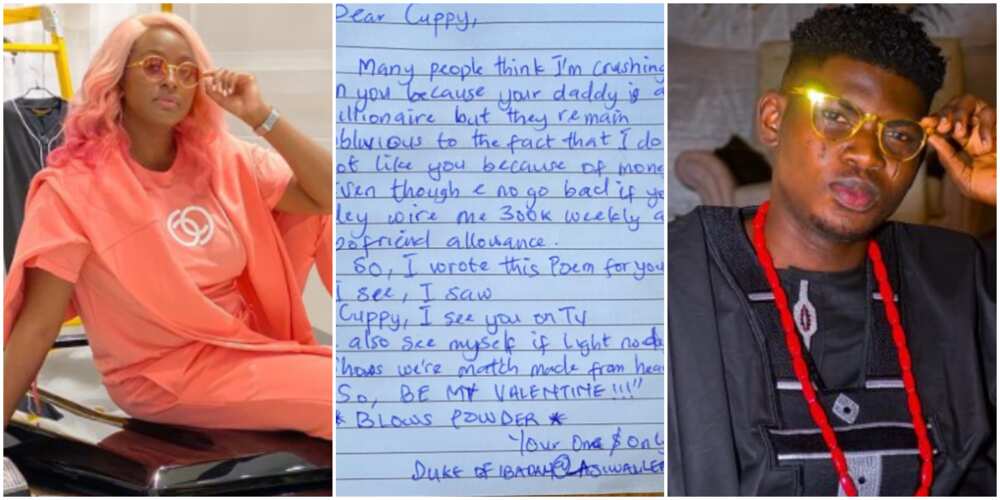 Dear Cuppy,
Many people think I'm crushing
n you because your daddy is a
illionaire but they remain
oblivious to the fact that I do
ot like you because of mone
Even though e no go bad if yo
dey wire me 300k weekly a
oofriend allowance.
So, I wrote this Poem for you
I see, I saw
Cuppy, I see you on TV
also see myself if light no de
Shows we're match made from hea
So, BE MY VALENTINE!!!"
* BLOWS POWDER *
Your One & only
DUKE OF IBADAN